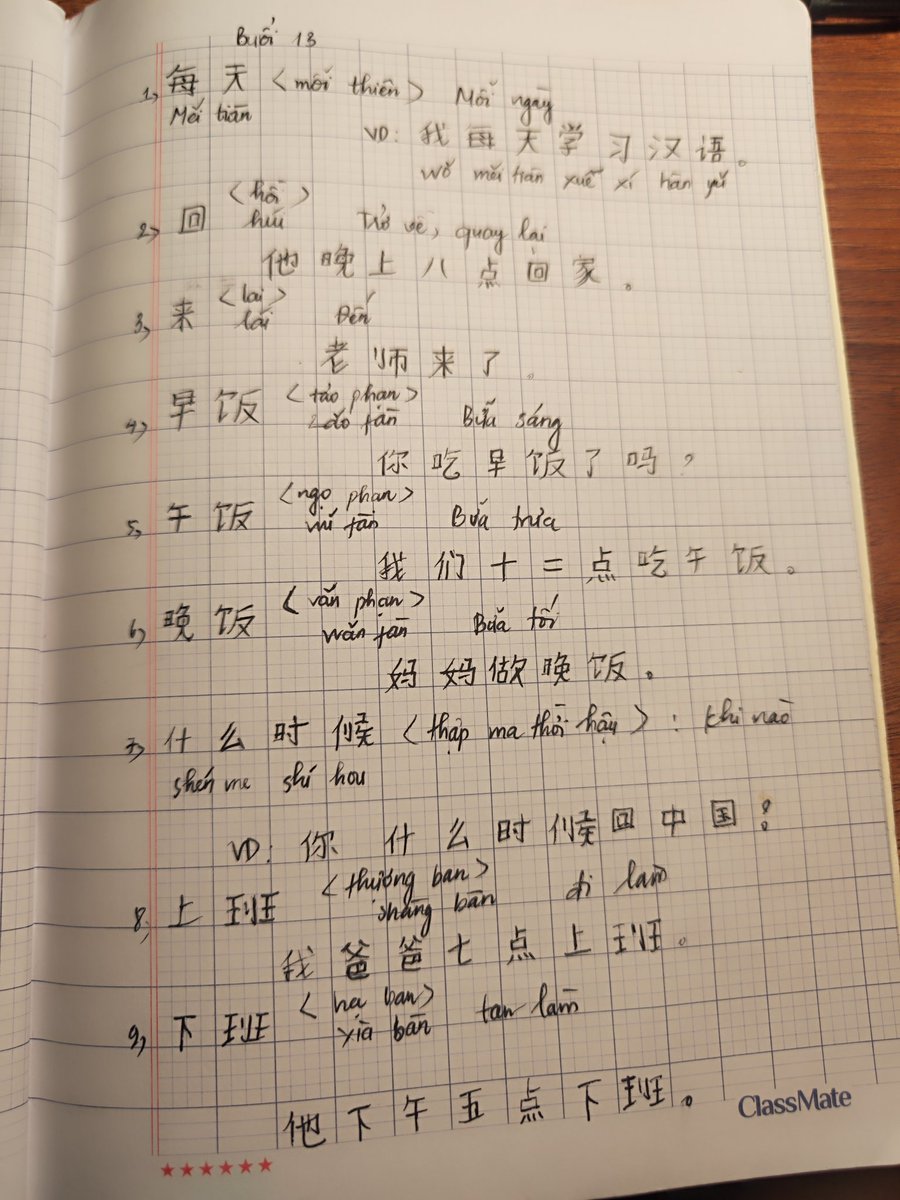 Buổi 13
1, 每天 <mỗi thiên> Mỗi ngày
Měi tiān
VD: 我每天学习汉语。
wǒ měi tiān xué xí hàn yǔ
<hồi>
2, 回 huí trở về, quay lại
他晚上八点回家。
<lai>
3, 来 lái Đến
老师来了。
<tảo phạn>
4, 早饭 zǎo fàn Bữa sáng
你吃早饭了吗?
<ngọ phạn>
5, 午饭 wǔ fàn Bữa trưa
我们十二点吃午饭。
<vãn phạn>
6, 晚饭 wǎn fàn Bữa tối
妈妈做晚饭。
7, 什么时候 <thập ma thời hậu> : khi nào
shén me shí hou
VD: 你什么时候回中国?
<thượng ban>
8, 上班 shàng bān đi làm
我爸爸七点上班。
<hạ ban>
9, 下班 xià bān tan làm
他下午五点下班。
ClassMate